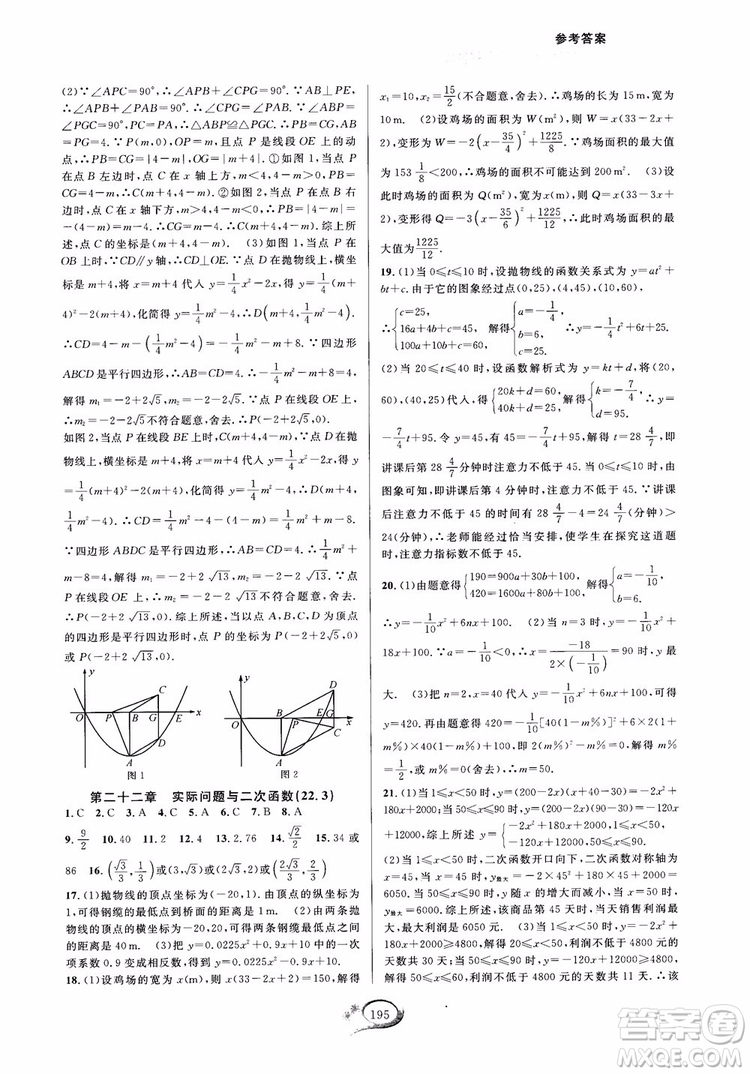 参考答案
(2)∵∠APC=90°,∴∠APB+∠CPG=90°.∵AB⊥PE,
∴∠APB+∠PAB=90°,∴∠CPG=∠PAB.∵∠ABP=
∠PGC=90°,PC=PA,∴△ABP≌△PGC,∴PB=CG,AB=
PG=4.∵P(m,0),OP=m,且点 P 是线段 OE 上的动
点,∴PB=CG=|4-m|,OG=|m+4|.①如图 1,当点 P 在
点 B 左边时,点 C 在 x 轴上方,m<4,4-m>0,PB=
CG=4-m,∴C(m+4,4-m).②如图 2,当点 P 在点 B
右边时,点 C 在 x 轴下方,m>4,4-m<0,∴PB=|4-
m|=-(4-m)=m-4,∴C(m+4,4-m).综上所
述,点 C 的坐标是(m+4,4-m). (3)如图 1,当点 P 在
OB 上时,∵CD∥y 轴,∴CD⊥OE.∵点 D 在抛物线上,横坐
标是 m+4,将 x=m+4 代入 y=1/4x²-2x,得 y=1/4(m+
4)²-2(m+4),化简得 y=1/4m²-4,∴D(m+4,1/4m²-4).
∴CD=4-m-(1/4m²-4)=-1/4m²-m+8.∵四边形
ABCD 是平行四边形,∴AB=CD=4,∴-1/4m²-m+8=4.
解得 m₁=-2+2√5,m₂=-2-2√5.∵点 P 在线段 OE
上,∴m₂=-2-2√5不符合题意,舍去.∴P(-2+2√5,0).
如图 2,当点 P 在线段 BE 上时,∵C(m+4,4-m).∵点 D 在抛
物线上,横坐标是 m+4,将 x=m+4 代入 y=1/4x²-2x,得 y=
1/4(m+4)²-2(m+4),化简得 y=1/4m²-4,∴D(m+4,
1/4m²-4),∴CD=1/4m²-4-(4-m)=1/4m²+m-8.
∵四边形 ABDC 是平行四边形,∴AB=CD=4,∴1/4m²+
m-8=4,解得 m₁=-2+2√13,m₂=-2-2√13.∵点
P 在线段 OE 上,∴m₂=-2-2√13不符合题意,舍去.
∴P(-2+2√13,0).综上所述,当以点 A,B,C,D 为顶点
的四边形是平行四边形时,点 P 的坐标为 P(-2+2√5,0)
或 P(-2+2√13,0).
y D C O P B G E x A
图 1
y D O B P E G x C A
图 2
第二十二章 实际问题与二次函数(22.3)
1.C 2.C 3.A 4.C 5.A 6.C 7.B 8.A
9.9/2 10.40 11.2 12.4 13.4 14.√2/2 15.34 或
86 16.(√3/3,1/3)或(3,√3)或(2√3,2)或(2√3/3,2/3)
17.(1)抛物线的顶点坐标为(-20,1).由顶点的纵坐标为
1,可得钢缆的最低点到桥面的距离是 1m. (2)由两条抛
物线的顶点坐标(-20,1),(20,1),可得两条钢缆最低点之
间的距离为 40m. (3)把 y=0.0225x²+0.9x+10 中一次
项系数 0.9 变成相反数,得 y=0.0225x²-0.9x+10.
18.(1)设鸡场的宽为 x(m),得 x(33-2x+2)=150,解得
x₁=10,x₂=15/2(不合题意,舍去).∴鸡场的长为 15m,宽为
10m. (2)设鸡场的面积为 W(m²),则 W=x(33-2x+
2),变形为 W=-2(x-35/4)²+1225/8.∴鸡场面积的最大值
为 153 1/8<200,∴鸡场面积不可能达到 200m². (3)设
此时鸡场的面积为 Q(m²),宽为 x(m),则 Q=x(33-3x+
2),变形得 Q=-3(x-35/6)²+1225/12,∴此时鸡场面积的最
大值为1225/12.
19.(1)当 0≤t≤10 时,设抛物线的函数关系式为 y=at²+
bt+c.由于它的图象经过点(0,25),(4,45),(10,60),
∴{c=25,16a+4b+c=45,100a+10b+c=60,解得{a=-1/4,b=6,c=25.∴y=-1/4t²+6t+25.
(2)当 20≤t≤40 时,设函数解析式为 y=kt+d,将(20,
60),(40,25)代入,得{20k+d=60,40k+d=25,解得{k=-7/4,d=95.∴y=
-7/4t+95.令 y=45,有 45=-7/4t+95,解得 t=28 4/7,即
讲课后第 28 4/7 分钟时注意力不低于 45.当 0≤t≤10 时,
令 y=45,有 45=-1/4t²+6t+25,解得 t₁=4,t₂=20,由
图象可知,即讲课后第 4 分钟时,注意力不低于 45.∴讲课
后注意力不低于 45 的时间有 28 4/7-4=24 4/7(分钟)>
24(分钟),∴老师能经过恰当安排,使学生在探究这道题
时,注意力指标数不低于 45.
20.(1)由题意得{190=900a+30b+100,420=3600a+60b+100,解得{a=-1/10,b=6.
∴y=-1/10x²+6x+100. (2)当 n=2 时,y=-1/10x²+
18x+100.∵a=-1/10<0,∴x=-18/(2×(-1/10))=90 时,y 最
大. (3)把 x=40 代入 y=-1/10x²+6x+100,可得
y=420.再由题意得 420=-1/10[40(1-m%)]²+6×2×
40(1-m%)+100,解得 m%=1/2或 m%=-3(舍去),
∴m=50.
21.(1)当 1≤x<50 时,y=(200-2x)(x+40-30)=-2x²+
180x+2000;当 50≤x≤90 时,y=(200-2x)(90-30)=-120x
+12000,综上所述,y={-2x²+180x+2000(1≤x<50),-120x+12000(50≤x≤90).
(2)当 1≤x<50 时,二次函数开口向下,二次函数对称轴为
x=45,当 x=45 时,y最大=-2×45²+180×45+2000=6050.
当 50≤x≤90 时,y 随 x 的增大而减小,当 x=50 时,y最大=
6000.∵6050>6000,综上所述,该商品第 45 天时,当天销售利润
最大,最大利润是 6050 元. (3)当 1≤x<50 时,y=-2x²+
180x+2000≥4800,解得 20≤x≤70,因此利润不低于 4800 元的
天数共 30 天;当 50≤x≤90 时,y=-120x+12000≥4800,
解得 x≤60,因此利润不低于 4800 元的天数共 11 天.∴该
195
答案圈
MXQE.COM